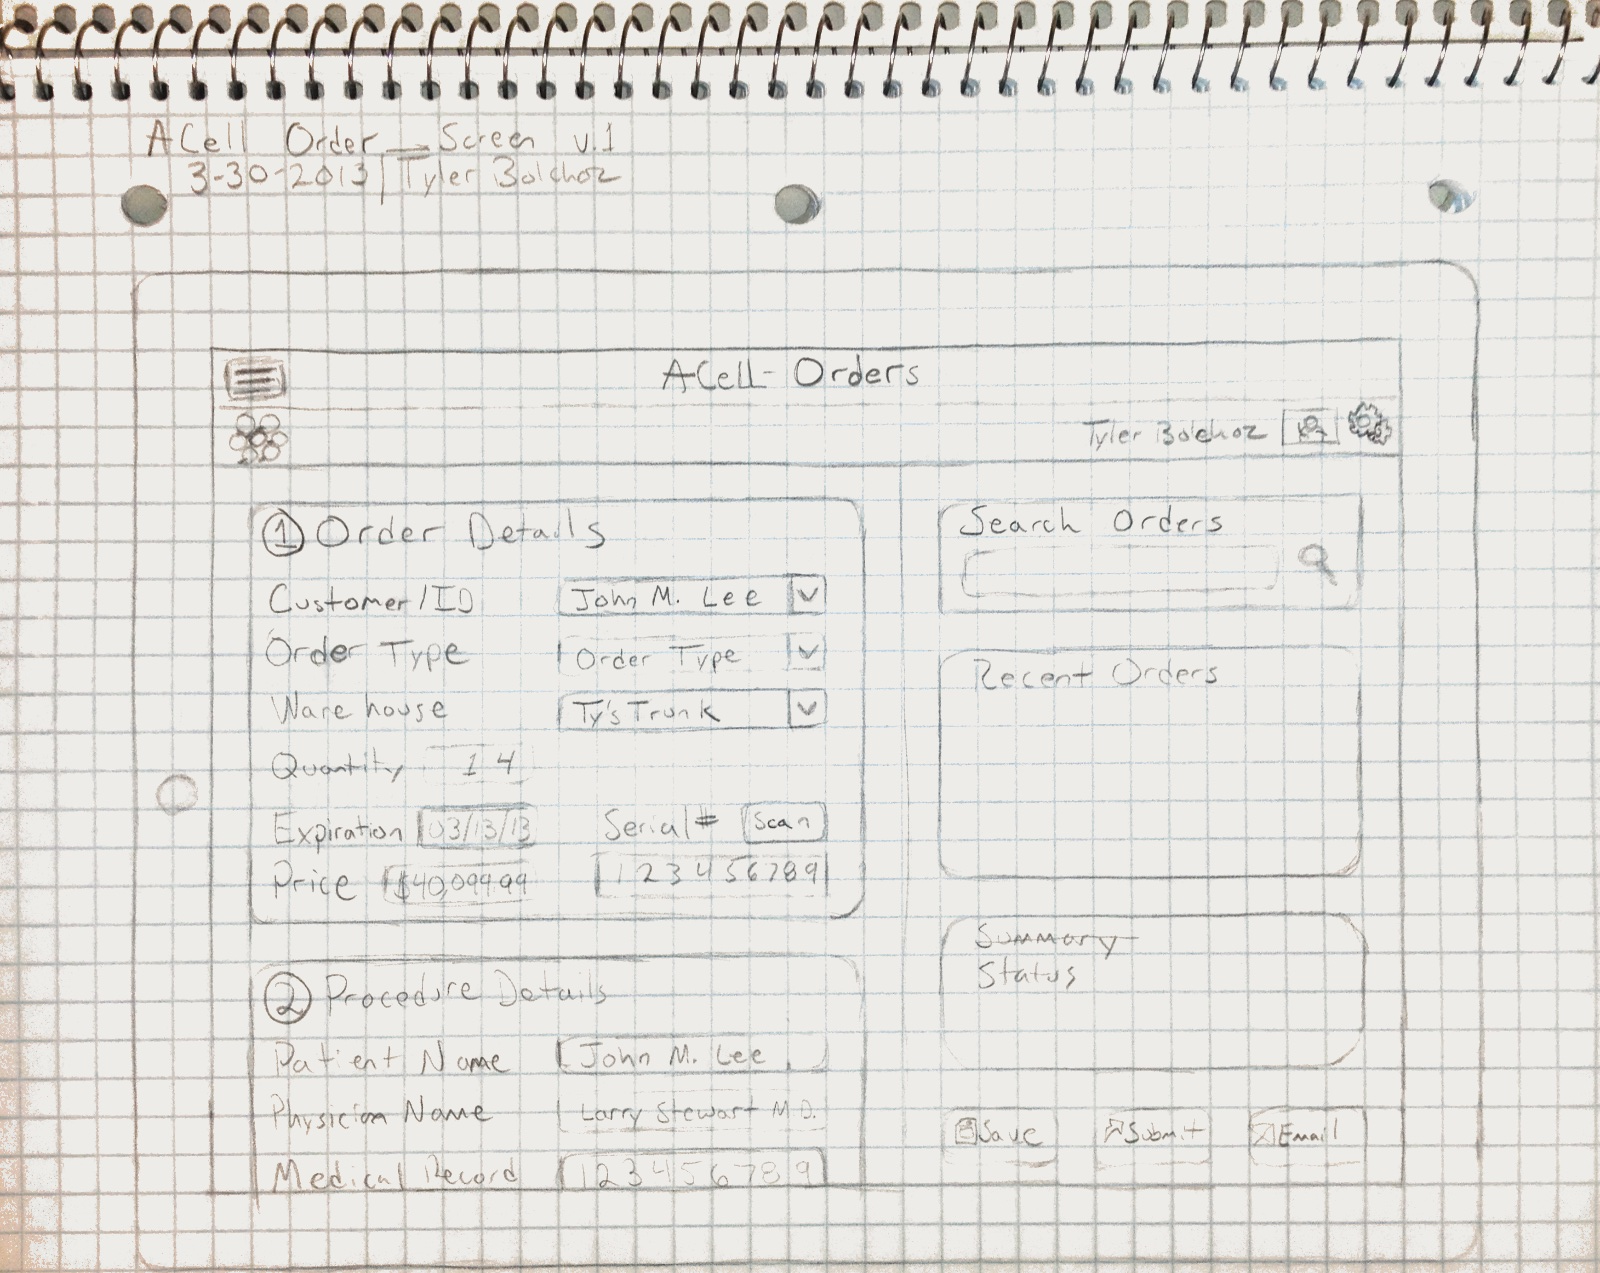 ACell Order → Screen v.1
3-30-2013 | Tyler Bolchoz
ACell- Orders
Tyler Bolchoz
① Order Details
Customer/ID John M. Lee
Order Type Order Type
Warehouse Ty's Trunk
Quantity 14
Expiration 03/13/13 Serial # Scan
Price $40,099.99 123456789
② Procedure Details
Patient Name John M. Lee
Physician Name Larry Stewart M.D.
Medical Record 123456789
Search Orders
Recent Orders
Summary
Status
Save Submit Email